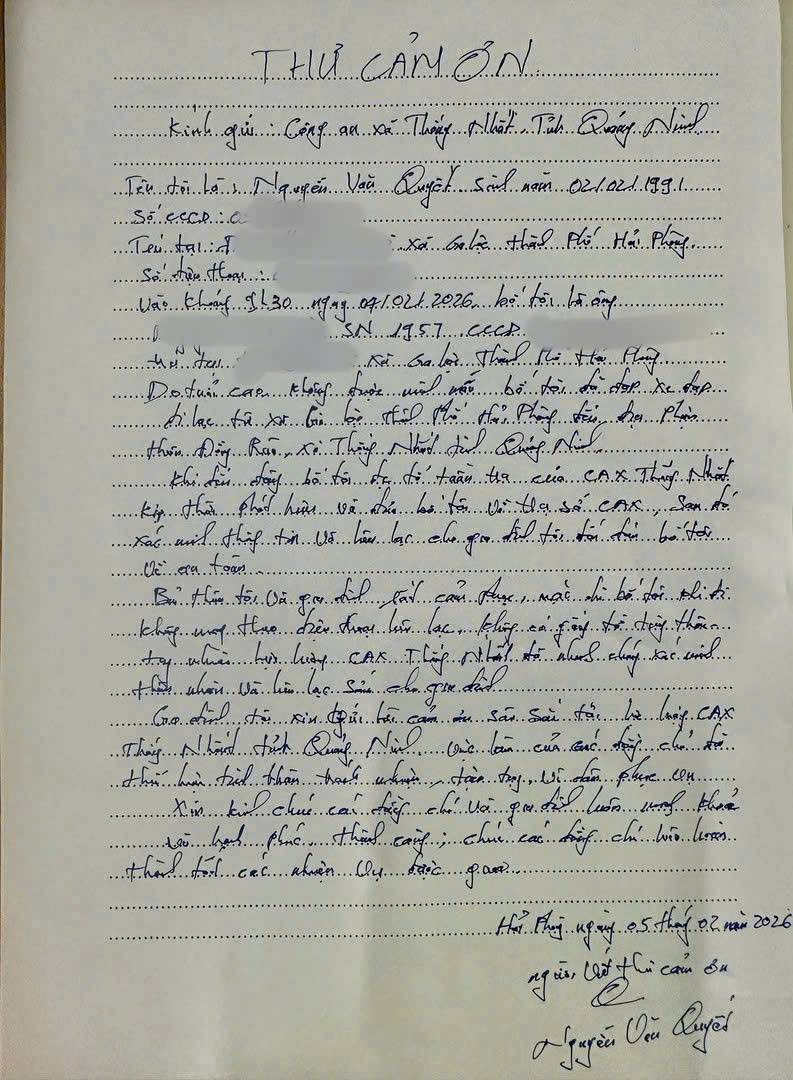 THƯ CẢM ƠN
Kính gửi: Công an xã Thống Nhất, Tỉnh Quảng Ninh
Tên tôi là: Nguyễn Văn Quyết sinh năm 02/02/1991
Số CCCD: 0
xã Gia Lộc thành Phố Hải Phòng.
Số điện thoại:
Vào khoảng 9h30 ngày 04/02/2026, bố tôi là ông
SN 1957 CCCD
xã Gia Lộc Thành Phố Hải Phòng
Do tuổi cao không được minh mẫn bố tôi đã đạp xe đạp
đi lạc từ xã Gia Lộc thành Phố Hải Phòng đến địa phận
thôn Đồng Rào, xã Thống Nhất tỉnh Quảng Ninh.
Khi đến đây bố tôi đc tổ tuần tra của CAX Thống Nhất
kịp thời phát hiện và đưa bố tôi về trụ sở CAX, Sau đó
xác minh thông tin và liên lạc cho gia đình tôi đến đón bố tôi
về an toàn.
Bản thân tôi và gia đình rất cảm phục, mặc dù bố tôi khi đi
không mang theo điện thoại liên lạc, không có giấy tờ tùy thân
tuy nhiên lực lượng CAX Thống Nhất đã nhanh chóng xác minh
thân nhân và liên lạc sớm cho gia đình
Gia đình tôi xin gửi lời cảm ơn sâu sắc tới lực lượng CAX
Thống Nhất tỉnh Quảng Ninh, việc làm của các đồng chí đã
thể hiện tinh thần trách nhiệm, tận tụy, vì dân phục vụ
Xin kính chúc các đồng chí và gia đình luôn mạnh khoẻ
và hạnh phúc, thành công; chúc các đồng chí luôn hoàn
thành tốt các nhiệm vụ được giao.
Hải Phòng ngày 05 tháng 02 năm 2026
người viết thư cảm ơn
Nguyễn Văn Quyết